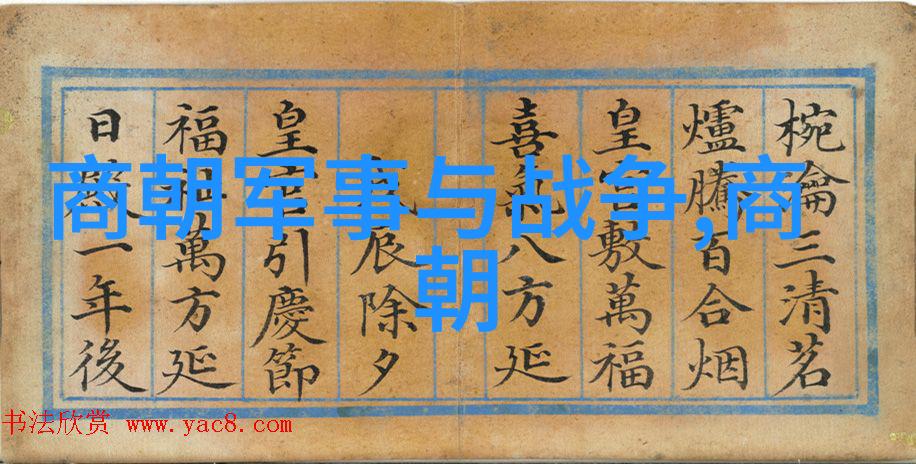 椀瀹三清茗
爐騰百合烟
皇宮敷萬福
喜氣八方延
辰除夕
皇引慶節
福祉萬方延
日一年後
商朝军事与战争,商
朝
书法欣赏 www.yac8.com